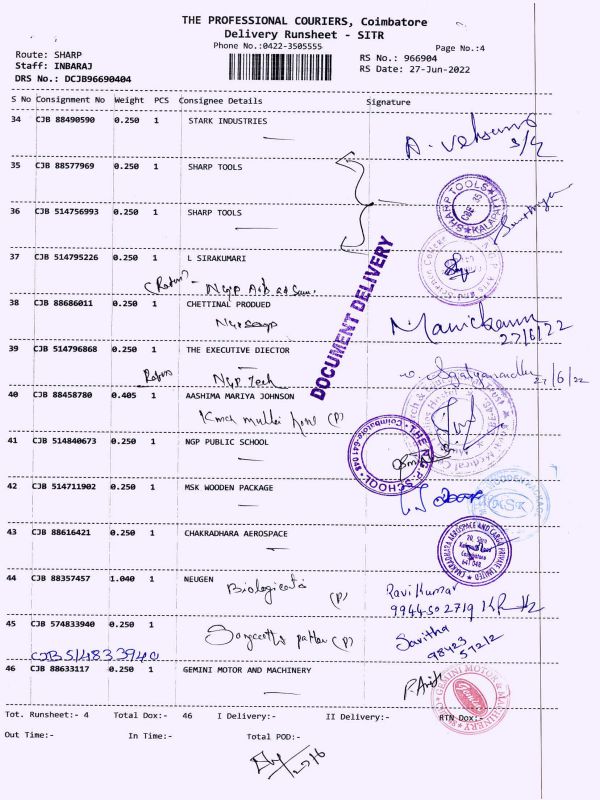 THE PROFESSIONAL COURIERS, Coimbatore
Delivery Runsheet - SITR
Phone No.:0422-3505555
Page No.:4
Route: SHARP
RS No.: 966904
Staff: INBARAJ
RS Date: 27-Jun-2022
DRS No.: DCJB96690404
S No Consignment No Weight PCS Consignee Details Signature
34 CJB 88490590 0.250 1 STARK INDUSTRIES
35 CJB 88577969 0.250 1 SHARP TOOLS
36 CJB 514756993 0.250 1 SHARP TOOLS
SHARP TOOLS
KALAPA
37 CJB 514795226 0.250 1 L SIRAKUMARI
DOCUMENT DELIVERY
38 CJB 88686011 0.250 1 CHETTINAL PRODUED
Manickam
27/6/22
39 CJB 514796868 0.250 1 THE EXECUTIVE DIECTOR
Ngp Tech
27/6/22
40 CJB 88458780 0.405 1 AASHIMA MARIYA JOHNSON
Kmch (P)
41 CJB 514840673 0.250 1 NGP PUBLIC SCHOOL
SCHOOL
Coimbatore-641 048
42 CJB 514711902 0.250 1 MSK WOODEN PACKAGE
MSK
43 CJB 88616421 0.250 1 CHAKRADHARA AEROSPACE
CHAKRADHARA AEROSPACE AND CARGO PRIVATE LIMITED
Coimbatore
641 048
44 CJB 88357457 1.040 1 NEUGEN
(P)
Ravi Kumar
9944502719
45 CJB 574833940 0.250 1 (P)
Savitha
98423 57212
CJB514833940
46 CJB 88633117 0.250 1 GEMINI MOTOR AND MACHINERY
GEMINI MOTOR & MACHINERY
Gemini
Tot. Runsheet:- 4 Total Dox:- 46 I Delivery:- II Delivery:- RTN Dox:-
Out Time:- In Time:- Total POD:-